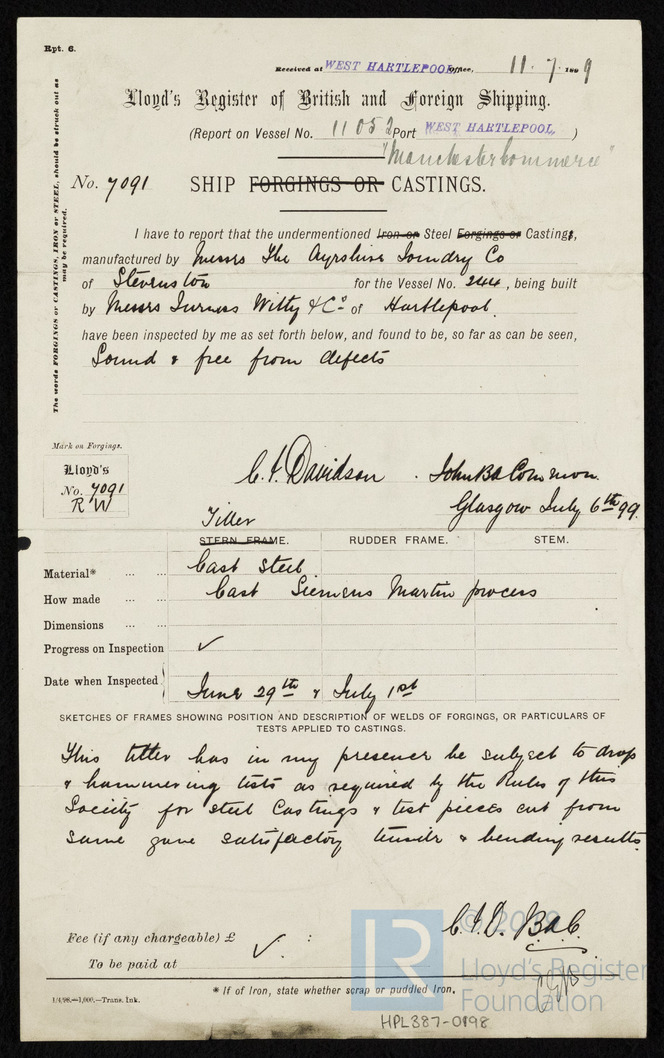 Rpt. 6.
Received at WEST HARTLEPOOL Office, 11. 7. 1899
Lloyd's Register of British and Foreign Shipping.
(Report on Vessel No. 11052 Port WEST HARTLEPOOL )
"Manchester Commerce"
No. 7091 SHIP FORGINGS OR CASTINGS.
The words FORGINGS or CASTINGS, IRON or STEEL, should be struck out as
may be required.
I have to report that the undermentioned Iron or Steel Forgings or Castings,
manufactured by Messrs The Ayrshire Foundry Co
of Stevenston for the Vessel No. 244, being built
by Messrs Furness Withy & Co. of Hartlepool.
have been inspected by me as set forth below, and found to be, so far as can be seen,
Sound & free from defects
Mark on Forgings.
Lloyd's
No. 7091
R W
C. J. Davidson . John Bd Common.
Glasgow July 6th 99.
Tiller
STERN FRAME. RUDDER FRAME. STEM.
Material* ... ... Cast Steel
How made ... ... Cast Siemens Martin process
Dimensions ... ...
Progress on Inspection ✓
Date when Inspected June 29th & July 1st
SKETCHES OF FRAMES SHOWING POSITION AND DESCRIPTION OF WELDS OF FORGINGS, OR PARTICULARS OF
TESTS APPLIED TO CASTINGS.
This tiller has in my presence be subject to drop
& hammering tests as required by the Rules of this
Society for steel Castings & test pieces cut from
same gave satisfactory tensile & bending results.
C. J. D. B d C.
Fee (if any chargeable) £ ✓. :
To be paid at
* If of Iron, state whether scrap or puddled Iron.
1/4/98.—1,000.—Trans. Ink.
© 2019
LR
Lloyd's Register
Foundation
HPL387-0198